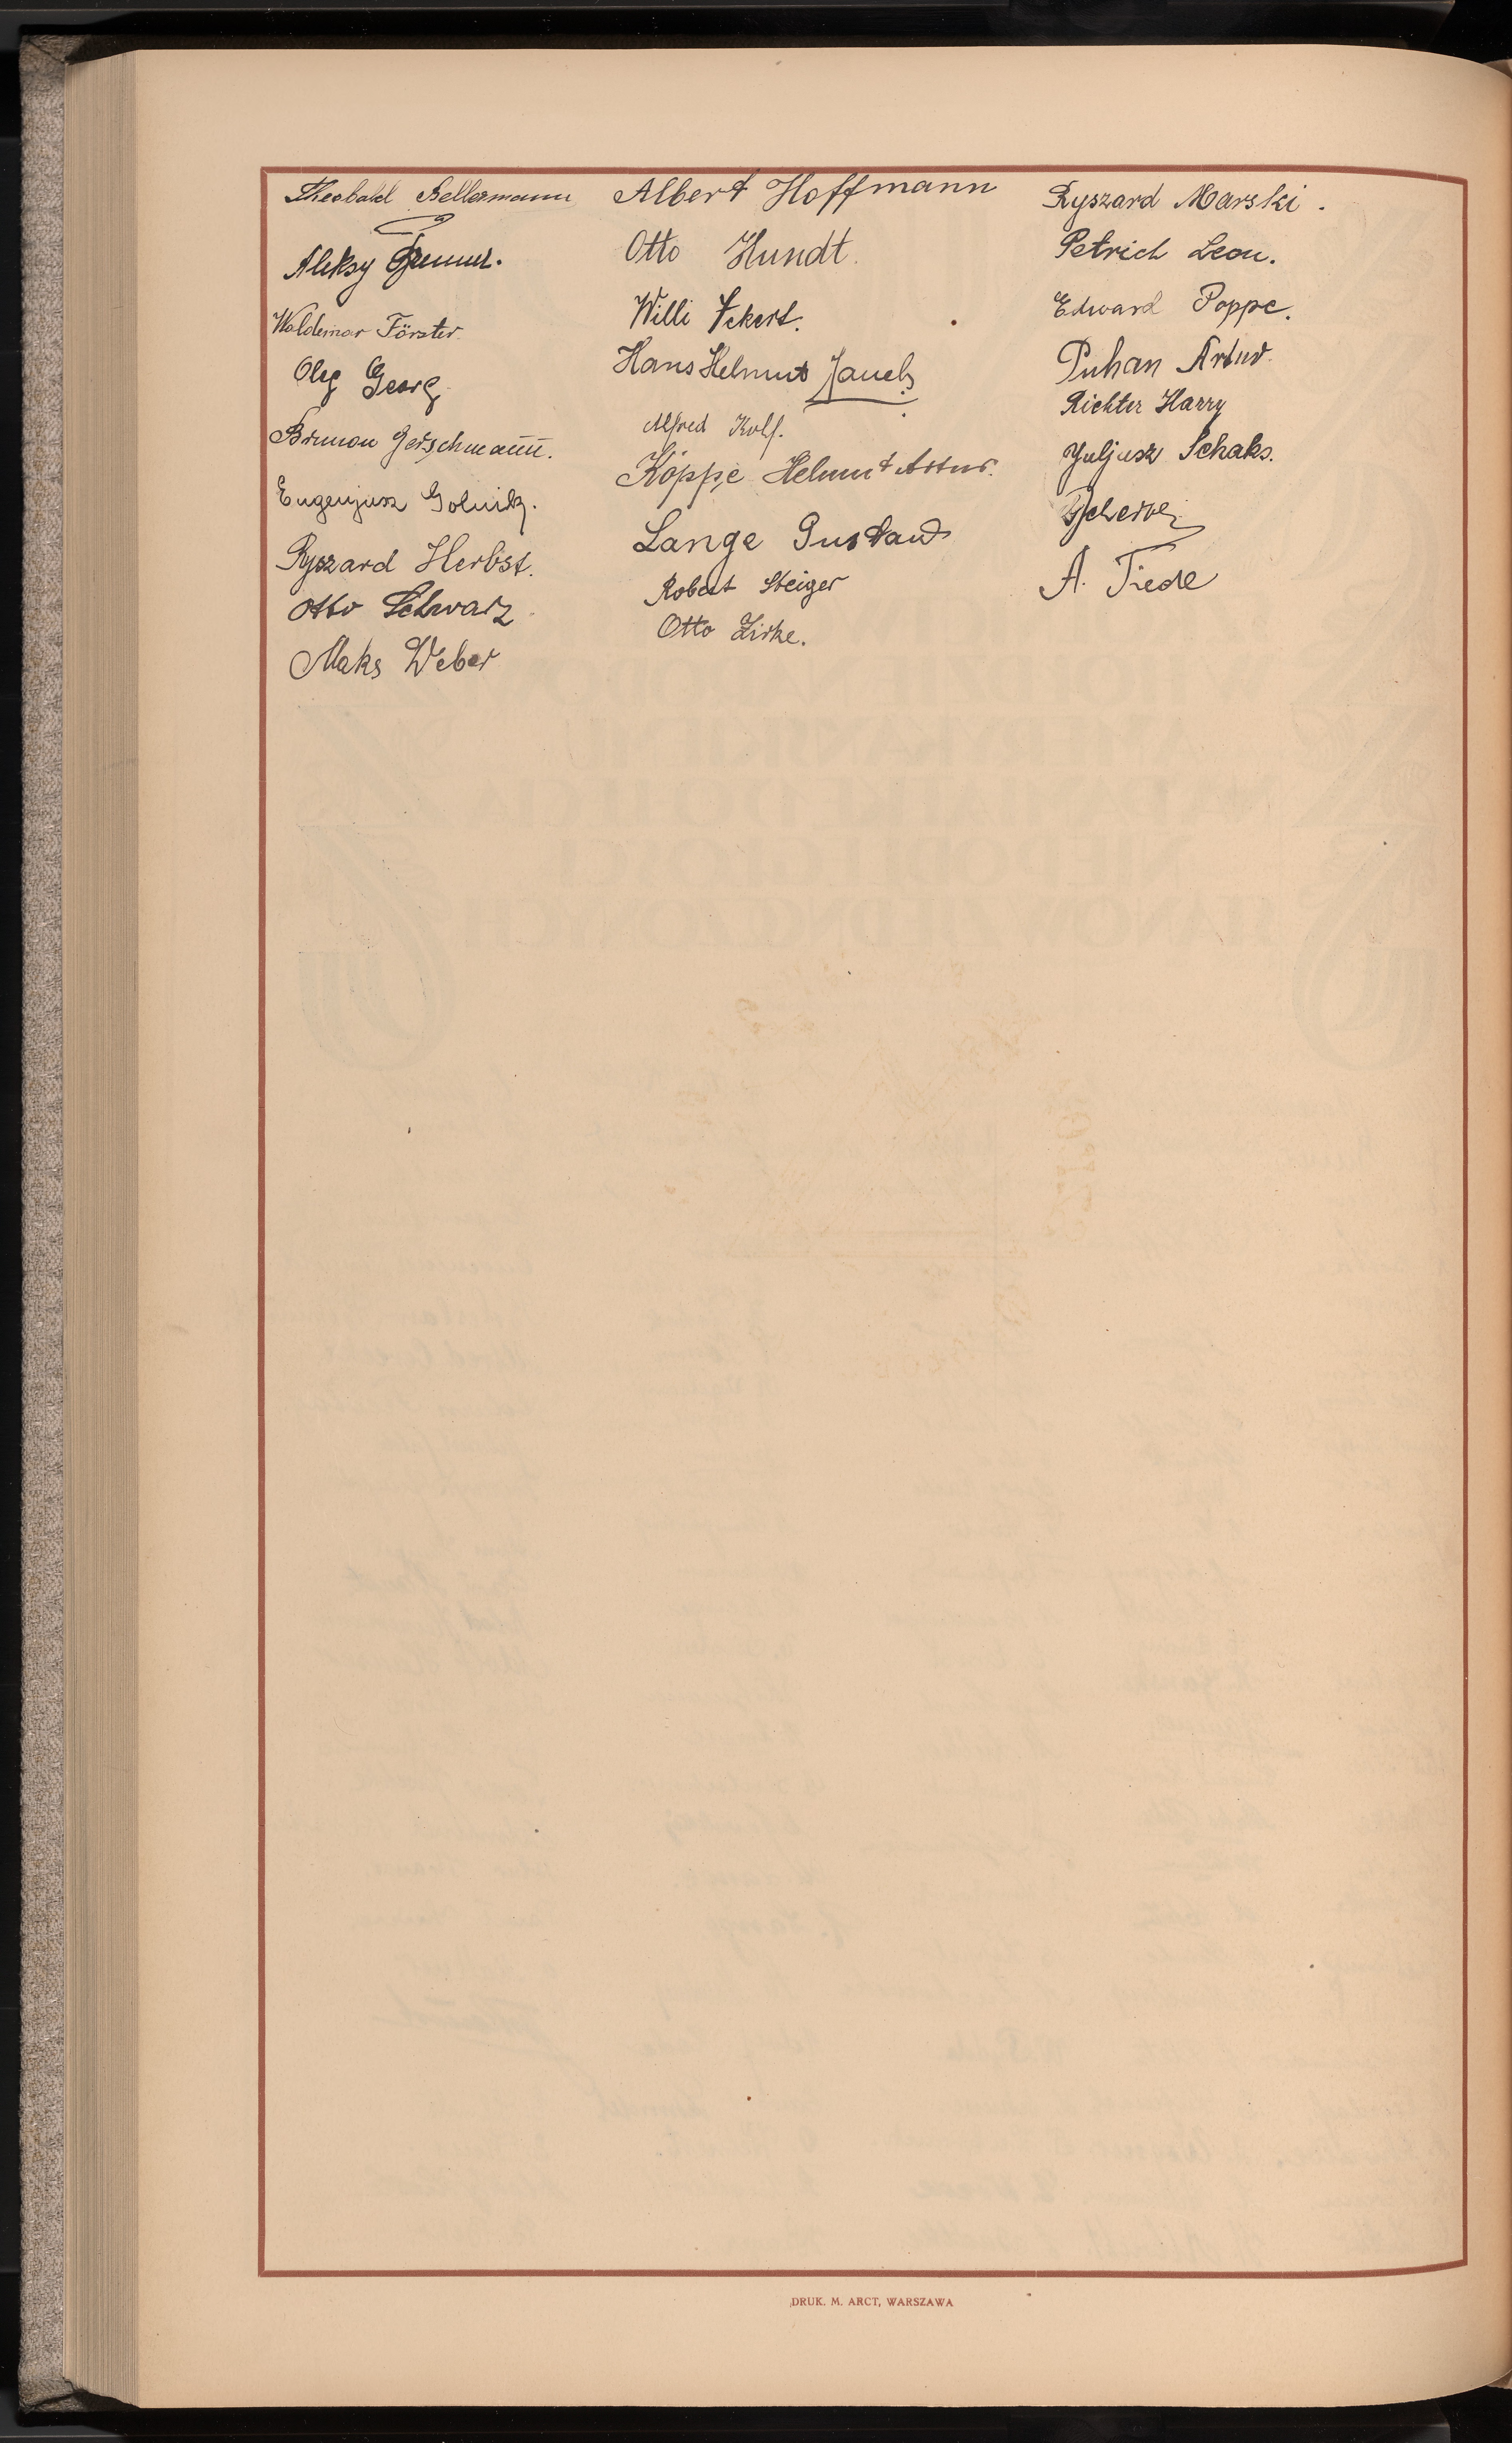 Theobald Bellermann
Aleksy
Waldemar Förster
Oleg Georg.
Brunon Gerschmann.
Eugenjusz Golnik.
Ryszard Herbst.
Otto Schwarz
Maks Weber
Albert Hoffmann
Otto Hundt.
Willi
Hans Helmut Jauch
Alfred Kolf.
Köppe Helmut Artur.
Lange Gustaw
Robert Steiger
Otto Zirke.
Ryszard Marski.
Petrich Leon.
Edward Poppe.
Puhan Artur.
Richter Harry
Juljusz Schaks.
A. Tiede
DRUK. M. ARCT, WARSZAWA